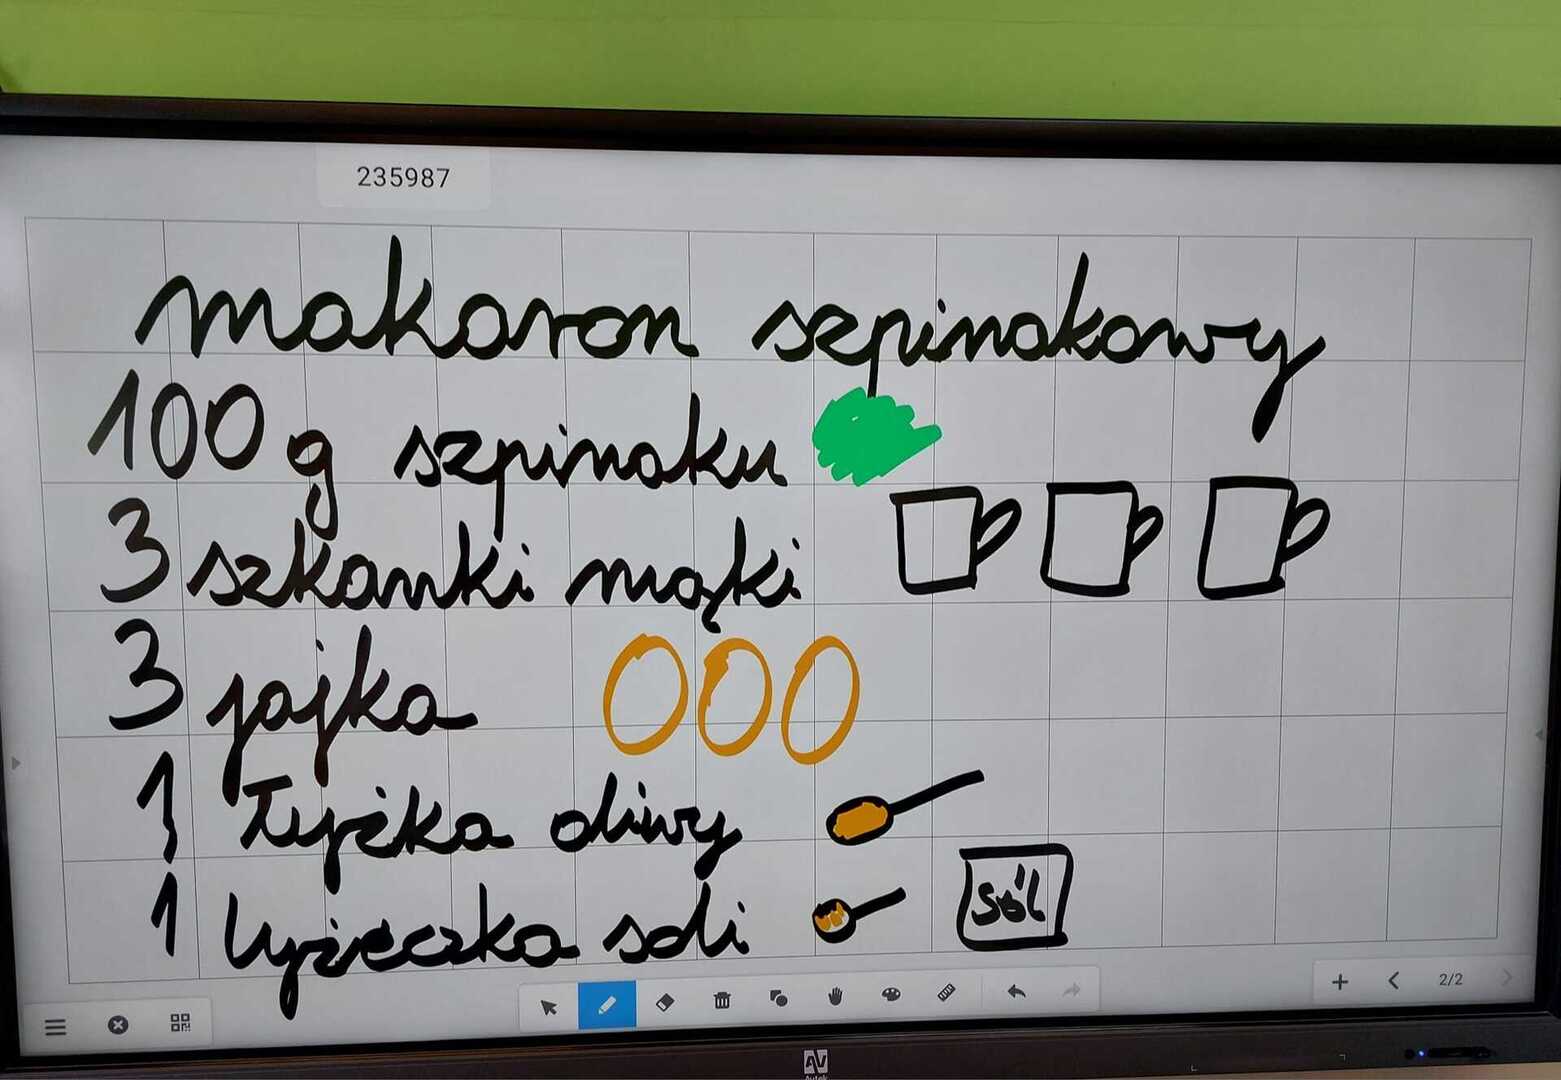 235987
makaron szpinakowy
100 g szpinaku
3 szkanki mąki
3 jajka
1 łyżka oliwy
1 łyżeczka soli
sól
2/2
AV
Avtek